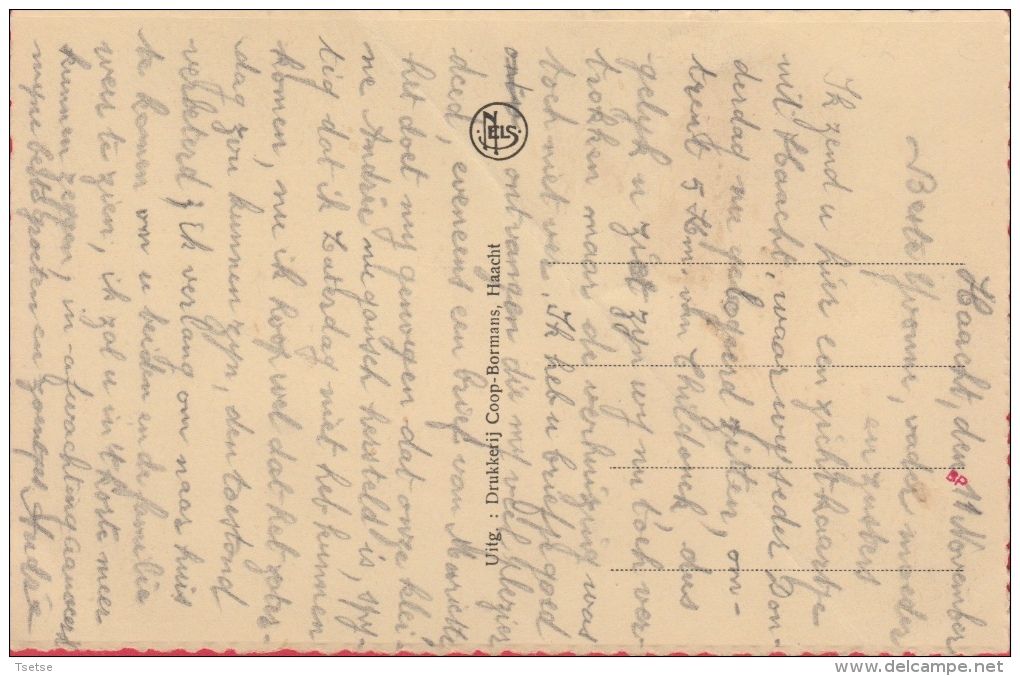 Haacht, den 11 November
Beste Yvonne, vader moeder
en zusters
Ik zend u hier een zichtkaartje
uit Haacht, waar wy seder Don-
derdag nu gelogeerd zitten, om-
trent 5 Km. van Thildonck, dus
gelyk u ziet zyn wy in toch ver-
trokken maar de verhuizing was
toch niet ver. Ik heb u briefje goed
ontvangen die my veel plezier
deed, eveneens een brief van
het doet my genoegen dat onze klei-
ne Andrée nu gansch hersteld is, spy-
tig dat ik Zaterdag niet heb kunnen
komen, nu ik hoop wel dat het zater-
dag zou kunnen zyn, den toestond
verbeterd, Ik verlang om naar huis
te komen om u beiden en de familie
weer te zien, ik zal u in 't korte meer
kunnen zeggen, in afwachting aanveerd
myne beste groeten en zoentjes
Uitg. : Drukkerij Coop-Bormans, Haacht
NELS
Tsetse
www.delcampe.net